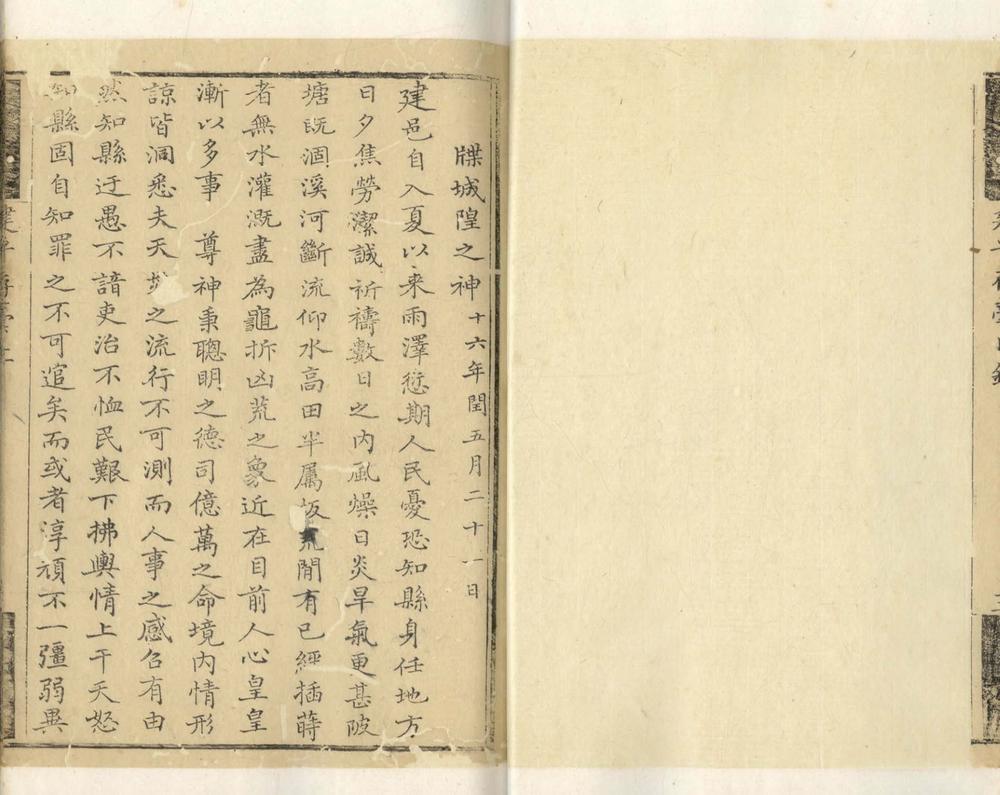 牒城隍之神十六年閏五月二十一日
建邑自入夏以来雨澤愆期人民憂恐知縣身任地方
日夕焦勞潔誠祈禱數日之内風燥日炎旱氣更甚陂
塘既涸溪河斷流仰水高田半屬坂荒間有已經插蒔
者無水灌溉盡為龜拆凶荒之象近在目前人心皇皇
漸以多事 尊神秉聰明之德司億萬之命境内情形
諒皆洞悉夫天之流行不可測而人事之感召有由
然知縣迂愚不諳吏治不恤民艱下拂輿情上干天怒
知縣固自知罪之不可逭矣而或者淳頑不一彊弱異